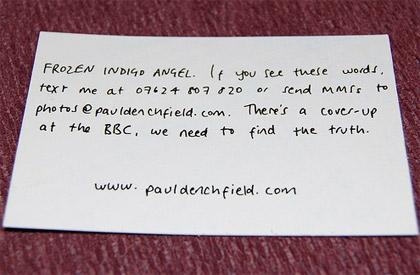 FROZEN INDIGO ANGEL. If you see these words,
text me at 07624 807 820 or send MMSs to
photos@pauldenchfield.com. There's a cover-up
at the BBC, we need to find the truth.
www.pauldenchfield.com